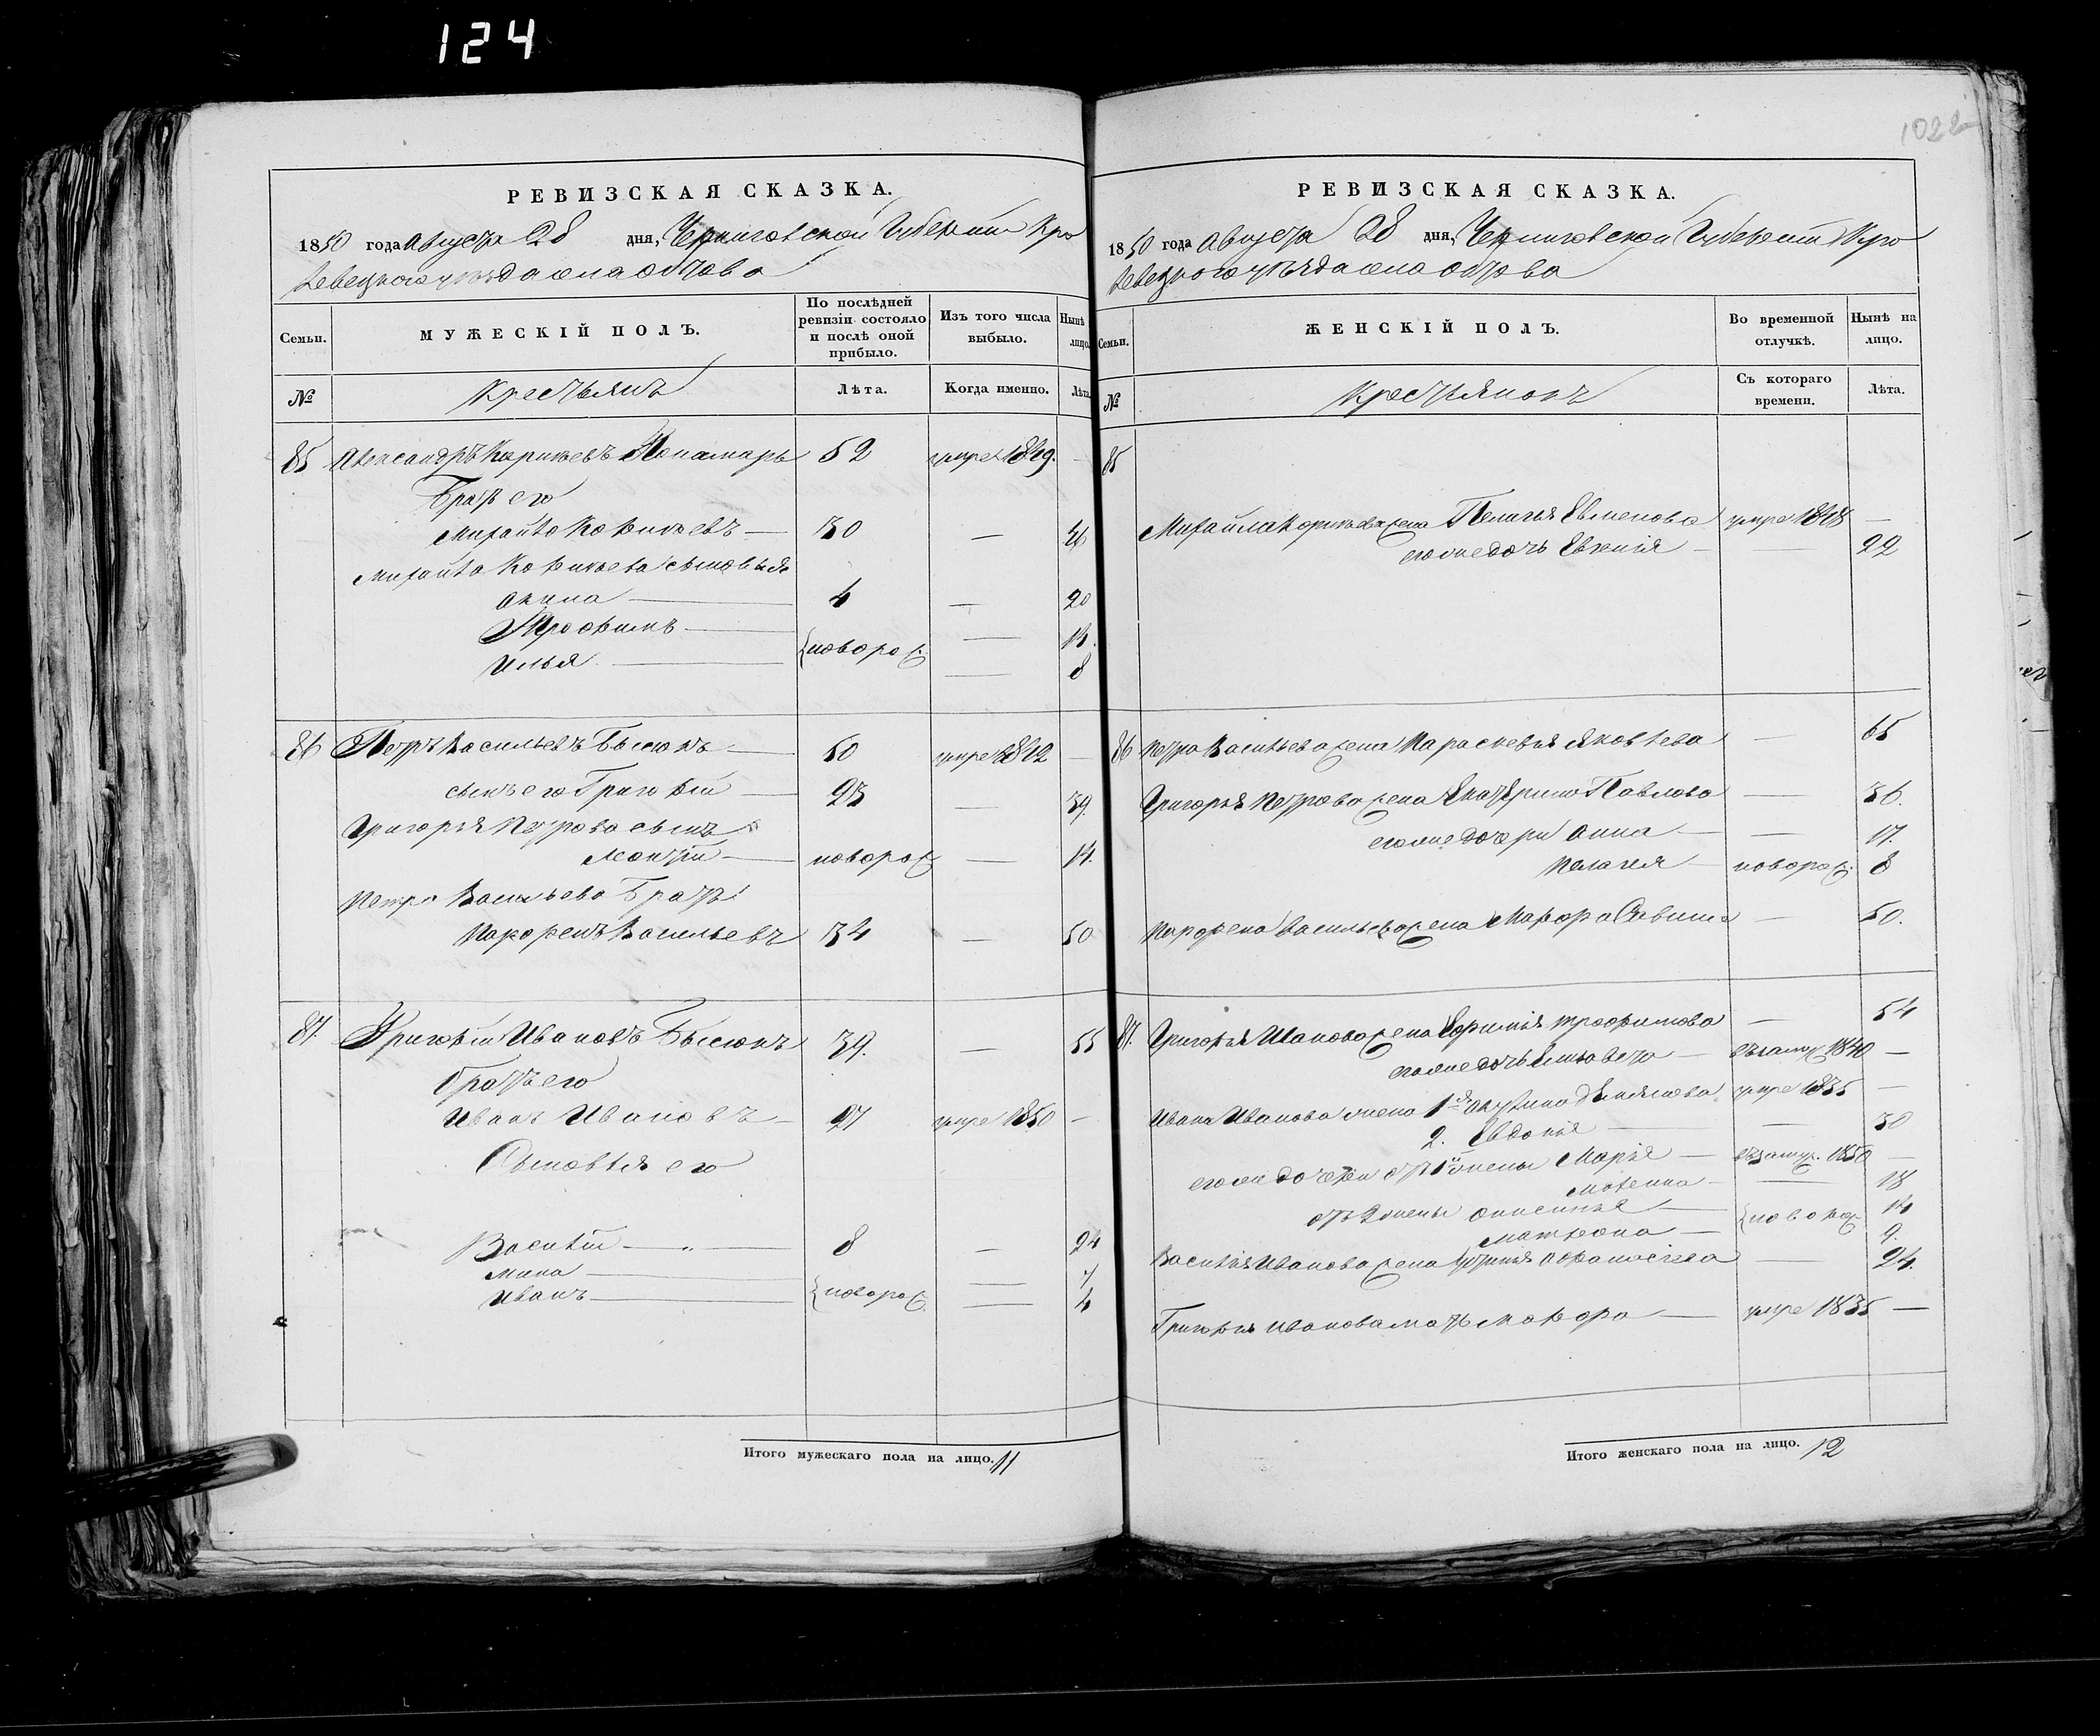 124
1022
РЕВИЗСКАЯ СКАЗКА.
1850 года Августа 28 дня, Черниговской Губернии Кро
левецкого уезда села Обтова
Семьи.
МУЖЕСКІЙ ПОЛЪ.
По послѣдней ревизіи состояло и послѣ оной прибыло.
Изъ того числа выбыло.
Нынѣ лицо.
№
Крестьянъ
Лѣта.
Когда именно.
Лѣта
85 Александръ Карпѣевъ Понамаръ 52 умре 1849. —
Братъ его
Михайло — 30 — 46
Михайла сыновья
Акима — 4 — 20
Трофимъ — новорож — 14.
Илья — — 8
86 Петръ Васильевъ Бысюкъ — 50 умре 1842 —
сынъ его Григорій — 23 — 39.
Григорья Петрова сынъ
Леонтій — новорож — 14.
Петра Васильева Братъ
Парфенъ Васильевъ 34 — 50
87. Григорій Ивановъ Бысюкъ 39. — 55
братъ его
Иванъ Ивановъ — 27 умре 1850 —
Сыновья его
Василій — „ — 8 — 24
Мина — новорож. — 7
Иванъ — — 4
Итого мужескаго пола на лицо. 11
РЕВИЗСКАЯ СКАЗКА.
1850 года Августа 28 дня, Черниговской Губернии Кро
левецкого уезда села Обтова
Семьи.
ЖЕНСКІЙ ПОЛЪ.
Во временной отлучкѣ.
Нынѣ на лицо.
№
Крестьянокъ
Съ котораго времени.
Лѣта.
85
Михайла жена Пелагья Евменова умре 1848 —
его же дочь Евгенія — — 22
86 Петра Васильева жена Параскевья Яковлева — 65
Григорья Петрова жена Екатерина Павлова — 36.
его же дочери Анна — — 17.
Пелагея — новорож. 8
Парфена Васильева жена Мавра Савина — 50.
87. Григорья Иванова жена Ефимія Трофимова — 54
его же дочь Елисавета — въ замуж 1840 —
Ивана Иванова жена 1я умре 1835 —
2. Евдокія — — 30
его же дочери отъ 1й жены Марья — въ замуж. 1850 —
— — 18
отъ 2 жены — новорож. 14
Матрона — 9.
Василія Иванова жена — 24.
Григорія Иванова мать Мавра — умре 1835 —
Итого женскаго пола на лицо. 12